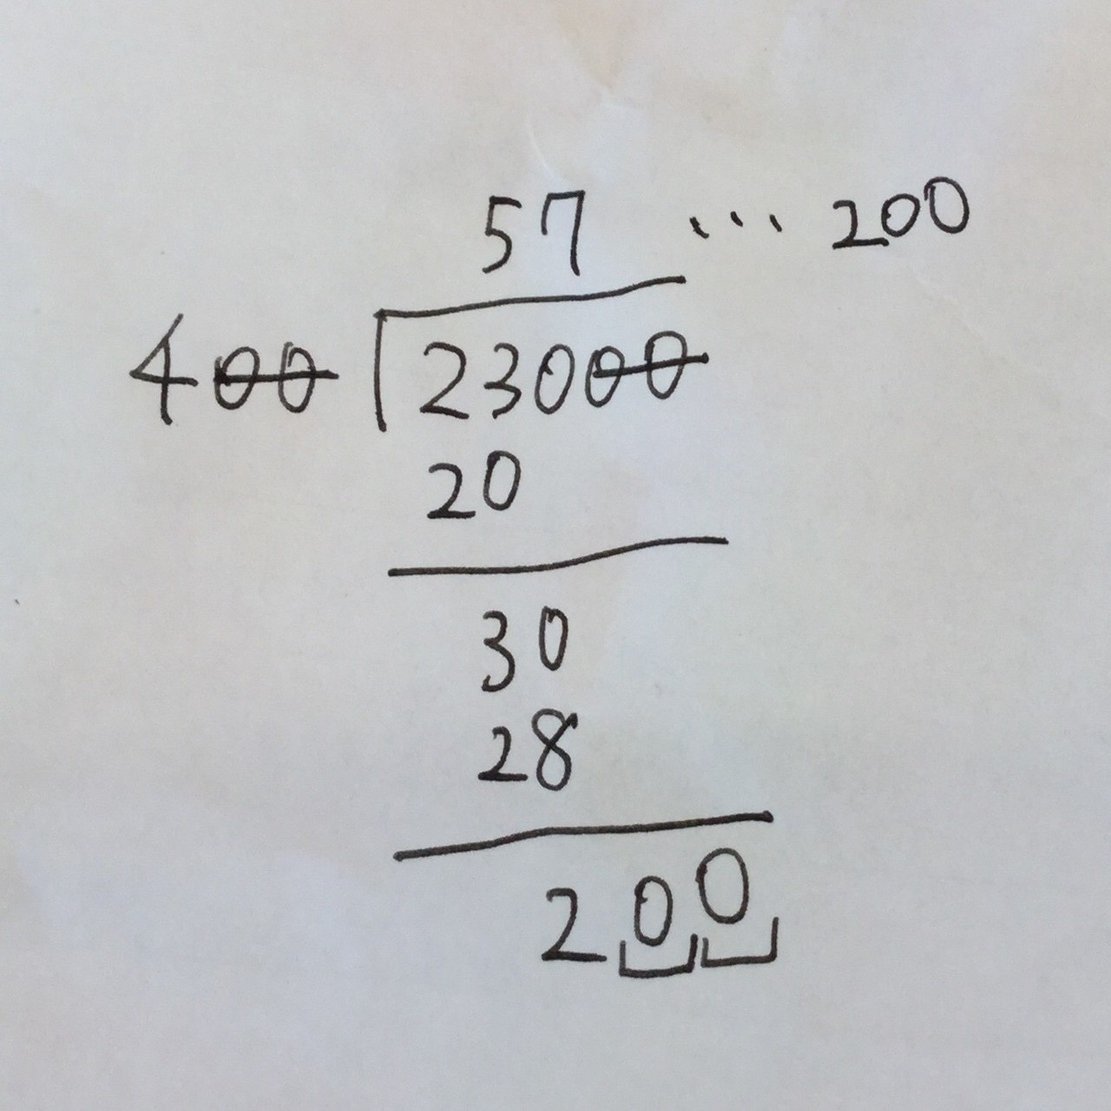 57 ... 200
400 23000
20
30
28
200